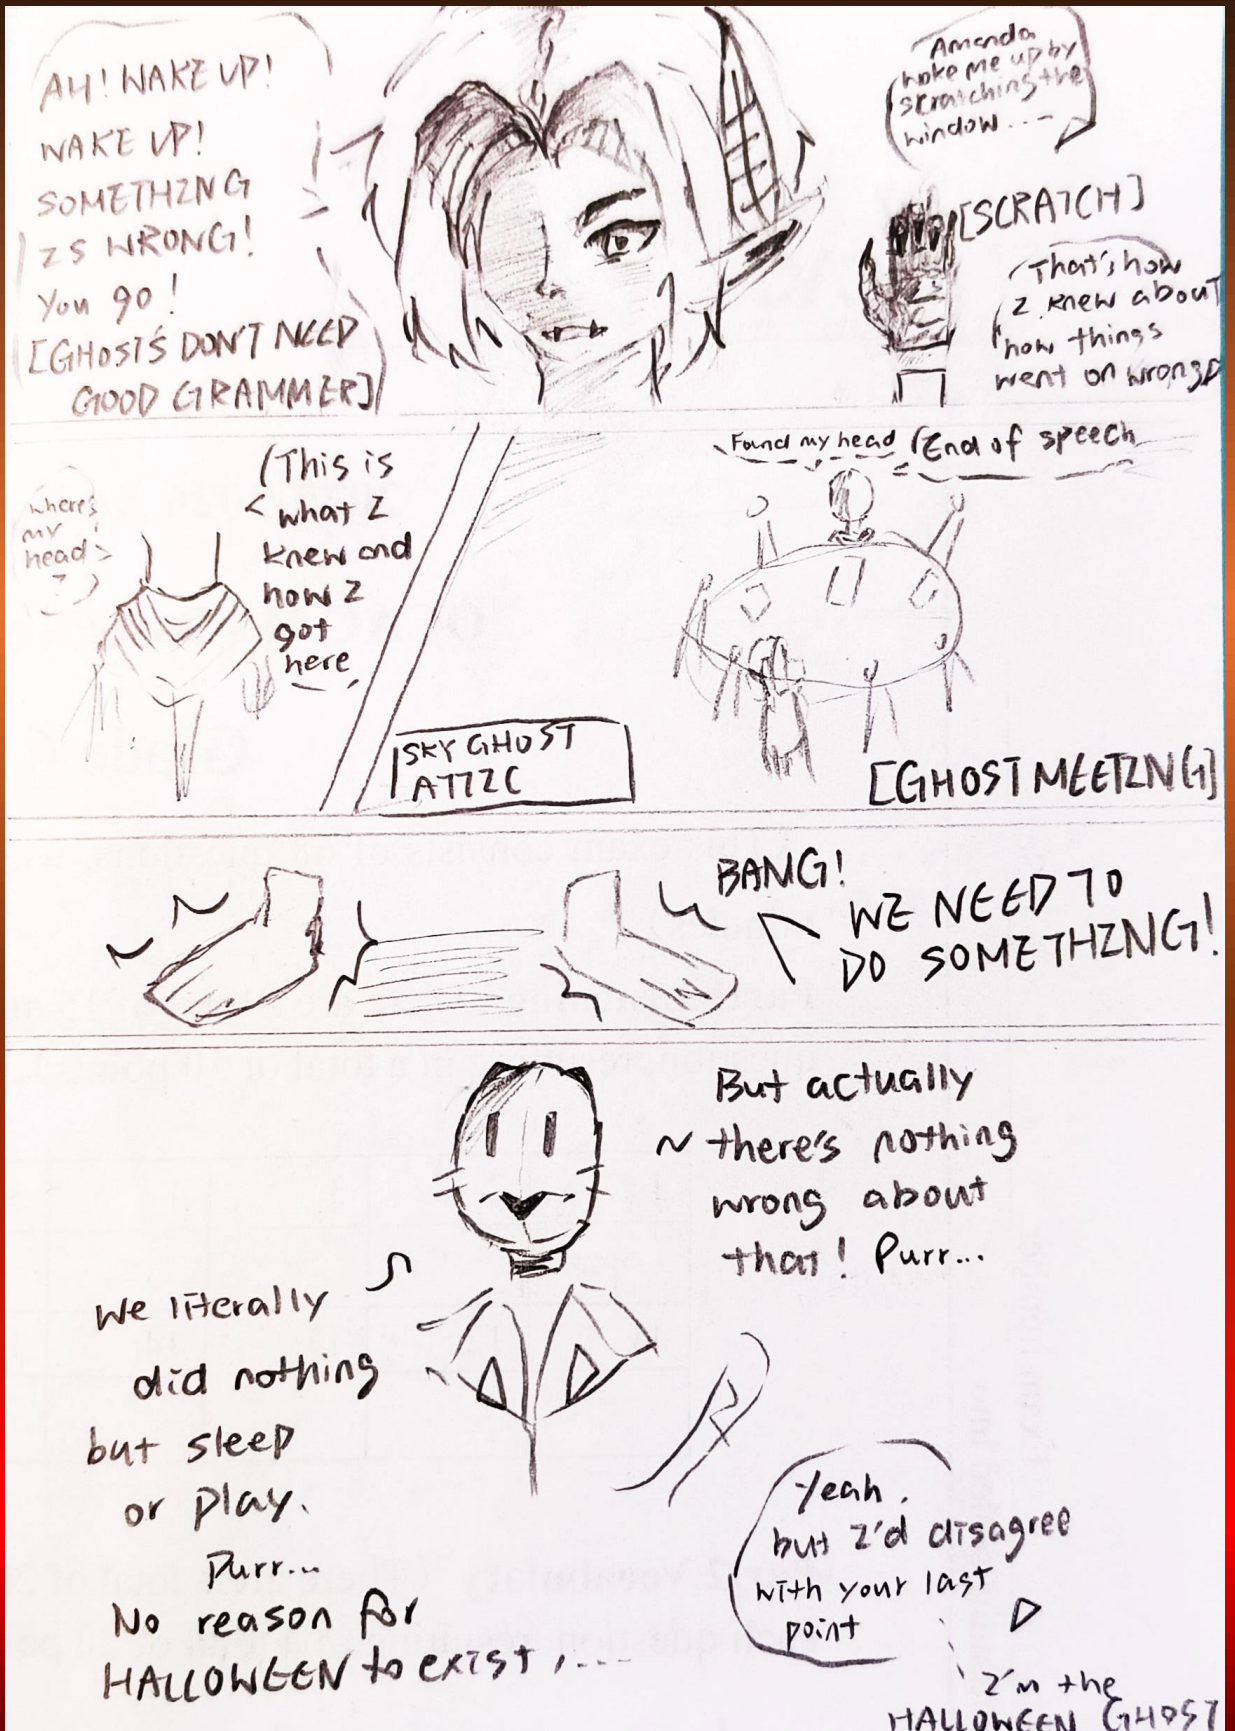 AH! WAKE UP!
WAKE UP!
SOMETHING
IS WRONG!
You go!
[GHOST'S DON'T NEED
GOOD GRAMMER]
Amanda
woke me up by
scratching the
window....
[SCRATCH]
That's how
I knew about
how things
went on wrong
where's
my
head
?
(This is
what I
knew and
how I
got
here
Found my head
(End of speech
SKY GHOST
ATTIC
[GHOST MEETING]
BANG!
WE NEED TO
DO SOMETHING!
But actually
~ there's nothing
wrong about
that! Purr...
We literally
did nothing
but sleep
or play.
Purr...
No reason for
HALLOWEEN to exist,....
Yeah,
but I'd disagree
with your last
point
I'm the
HALLOWEEN GHOST